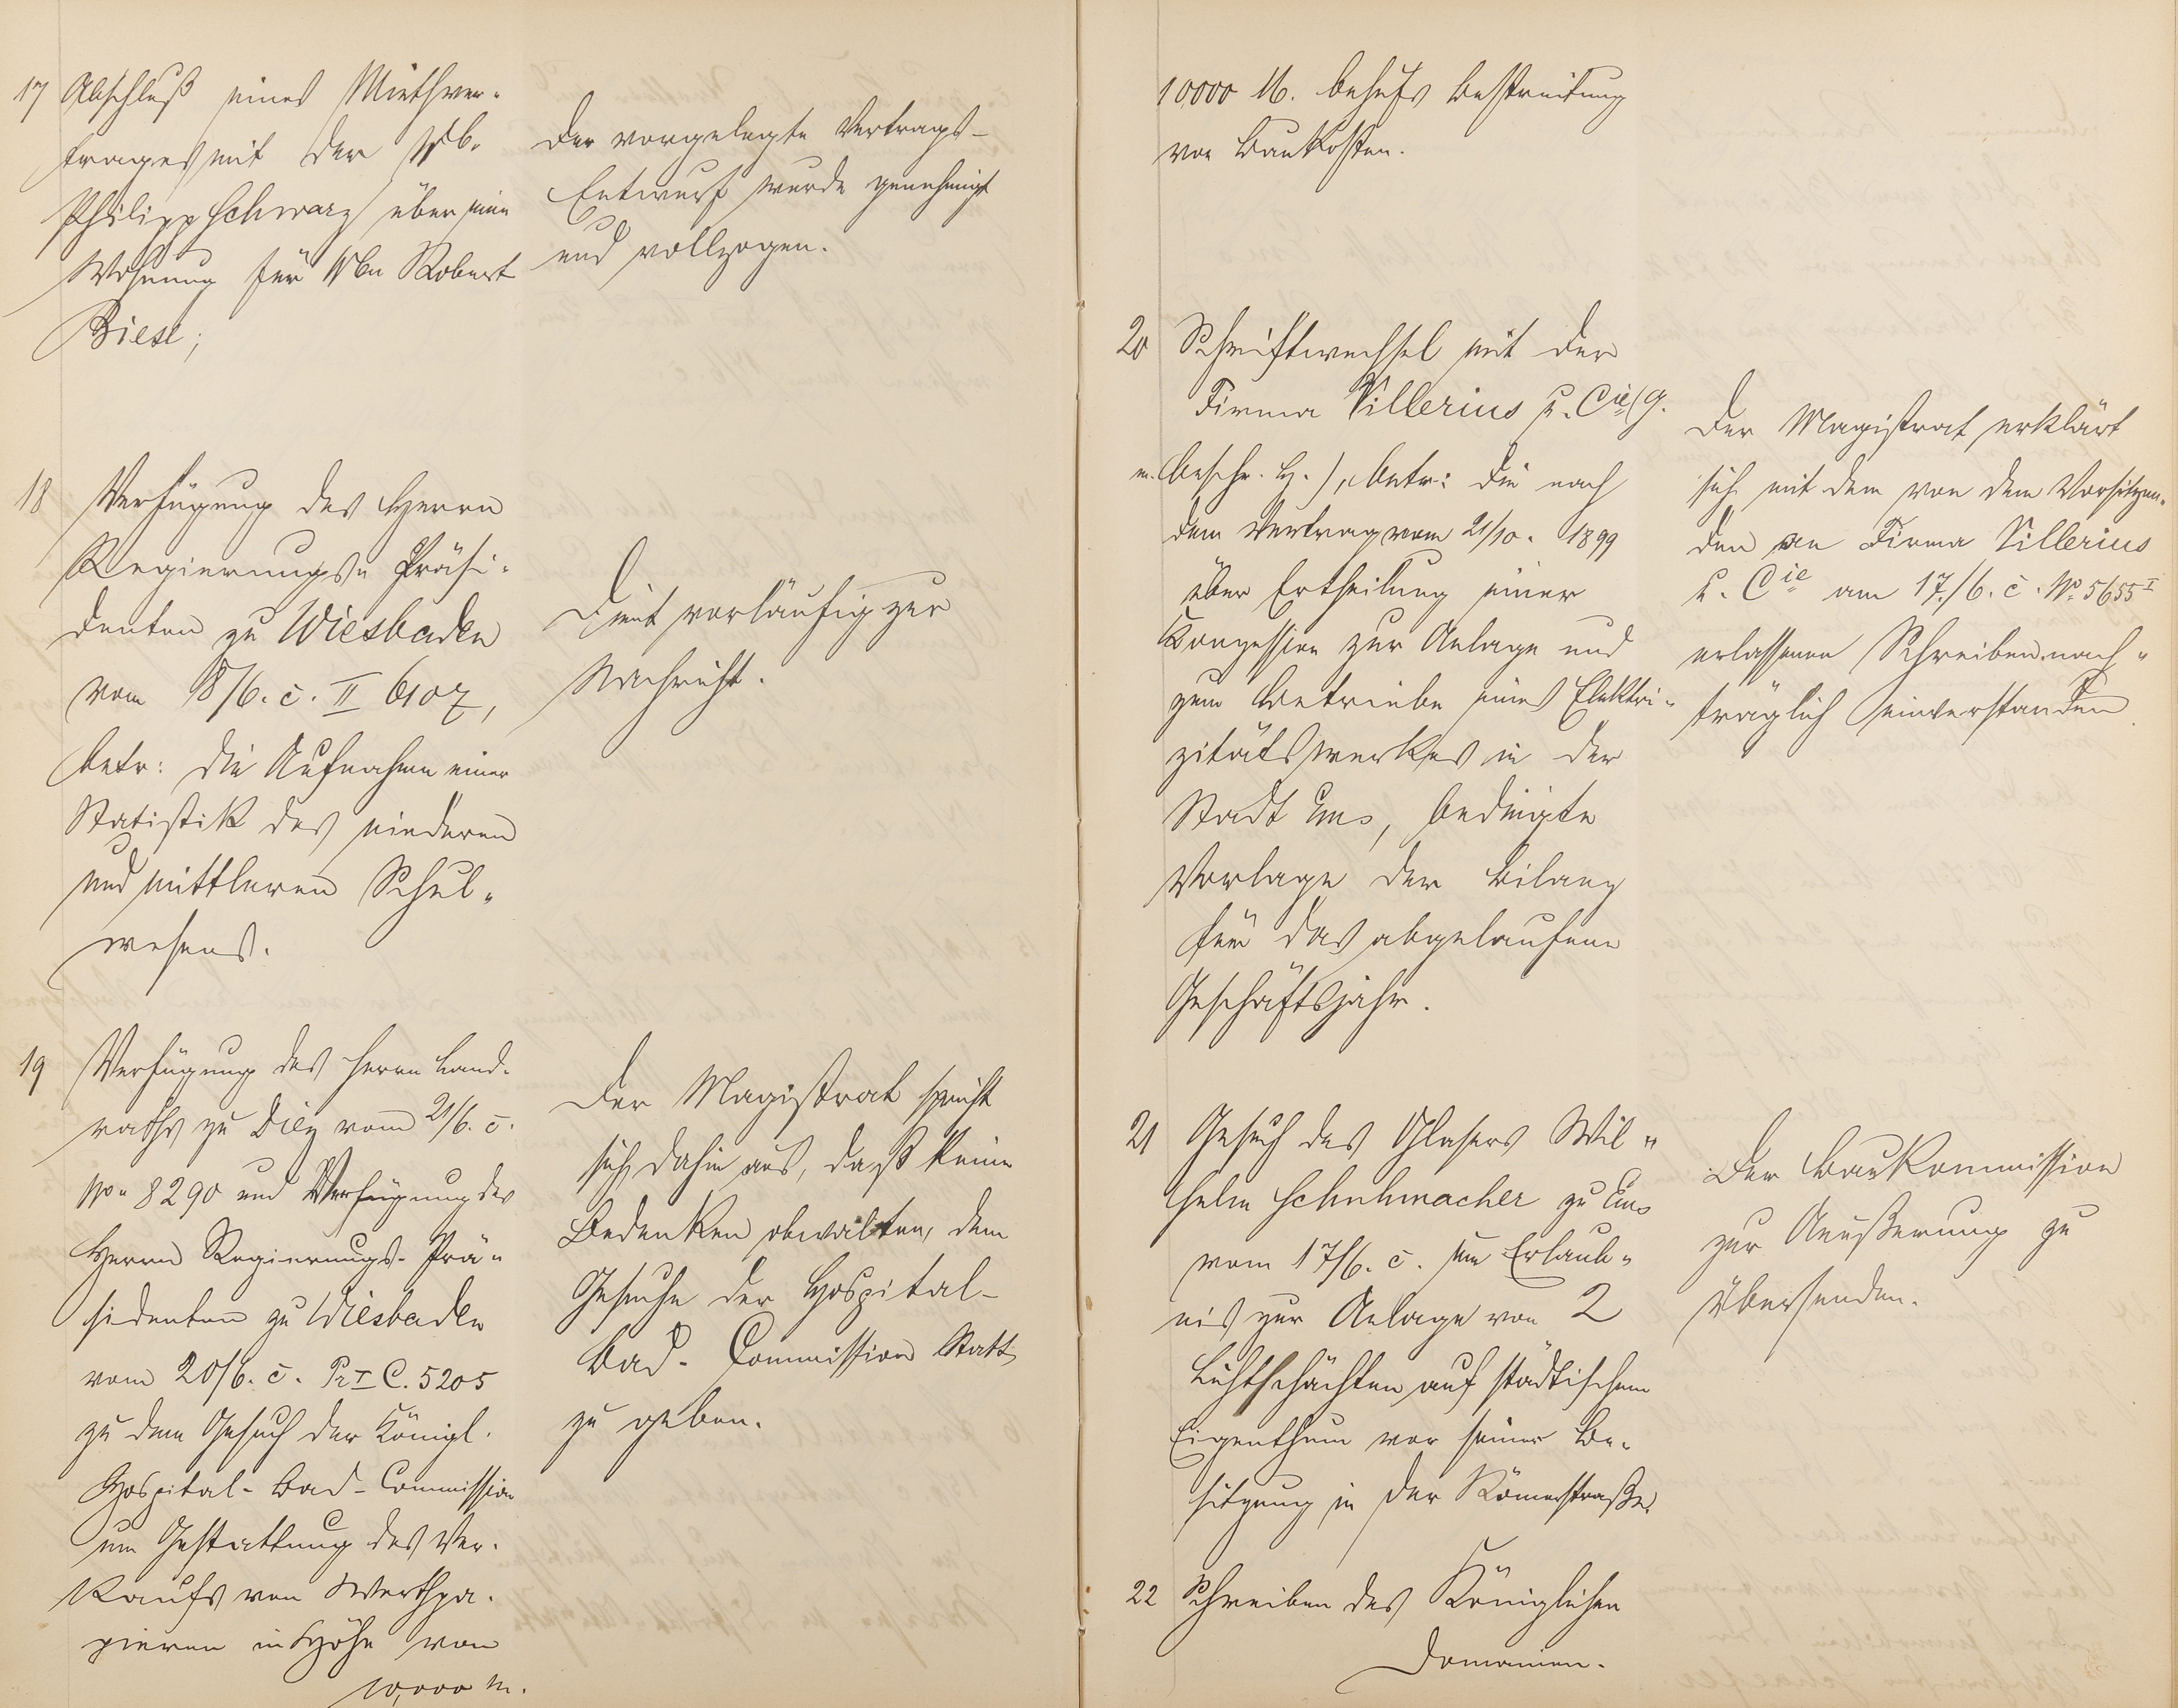 17 Abschluß eines Miethver-
trages mit der Wb.
Philipp Schwarz über eine
Wohnung für Wbe Robert
Biese;
Der vorgelegte Vertrags-
Entwurf wurde genehmigt
und vollzogen.
18 Verfügung des Herrn
Regierungs- Präsi-
denten zu Wiesbaden
vom 18/6. c. II 6107,
betr: die Aufnahme einer
Statistik des niederen
und mittleren Schul-
wesens.
Dient vorläufig zur
Nachricht.
19 Verfügung des Herrn Land-
raths zu Diez vom 21/6. c.
No. 8290 und Verfügung des
Herrn Regierungs- Prä-
sidenten zu Wiesbaden
vom 20/6. c. Pr I C. 5205
zu dem Gesuch der Königl.
Hospital- Bad- Commission
um Gestattung des Ver-
kaufs von Werthpa-
pieren in Höhe von
10,000 M.
Der Magistrat spricht
sich dahin aus, daß keine
Bedenken obwalten, dem
Gesuche der Hospital-
Bad- Commission Statt
zu geben.
10000 M. behufs Bestreitung
von Baukosten.
20 Schriftwechsel mit der
Firma Villerius u. Cie (G.
m. beschr. H.), betr: die nach
dem Vertrag vom 21/10. 1899
über Ertheilung einer
Konzession zur Anlage und
zum Betriebe eines Elektri-
zitätswerkes in der
Stadt Ems, bedingte
Vorlage der Bilanz
für das abgelaufene
Geschäftsjahr.
Der Magistrat erklärt
sich mit dem von dem Vorsitzen-
den an Firma Villerius
u. Cie am 17./6. c. No 5655 I
erlassenen Schreiben nach-
träglich einverstanden.
21 Gesuch des Glasers Wil-
helm Schuhmacher zu Ems
vom 17/6. c. um Erlaub-
nis zur Anlage von 2
Lichtschächten auf städtischem
Eigenthum vor seiner Be-
sitzung in der Römerstraße.
Der Baukommission
zur Aeußerung zu
übersenden.
22 Schreiben des Königlichen
Domänen-